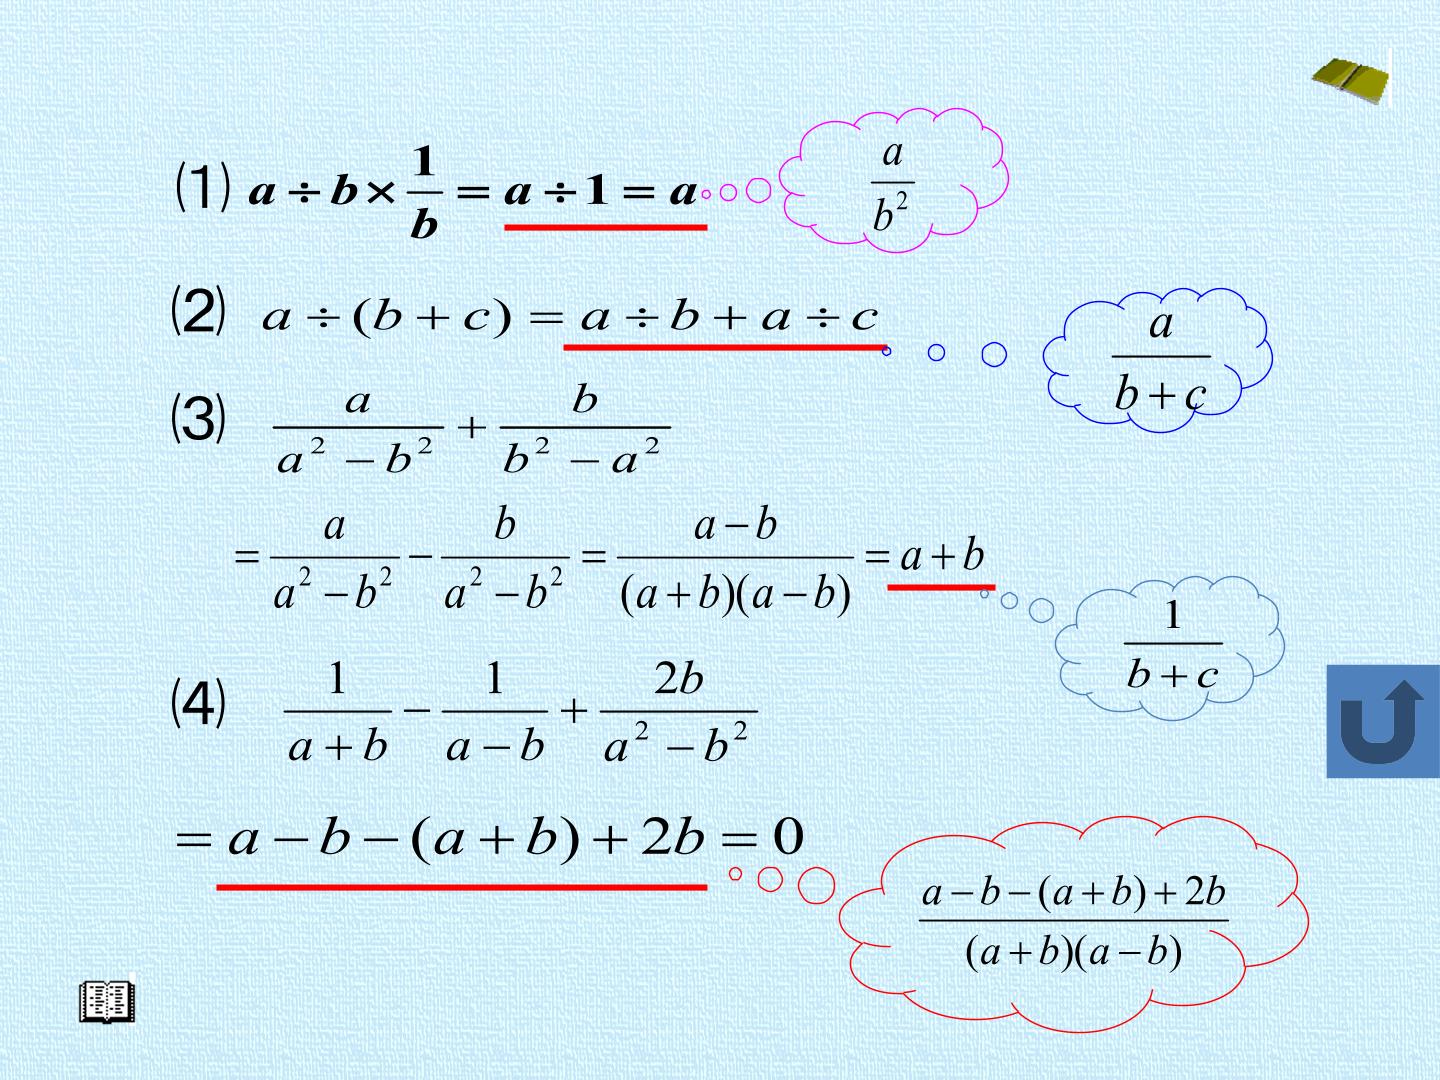 ⑴ a ÷ b × 1/b = a ÷ 1 = a
a/b²
⑵ a ÷ (b + c) = a ÷ b + a ÷ c
a/(b + c)
⑶ a/(a² − b²) + b/(b² − a²)
= a/(a² − b²) − b/(a² − b²) = (a − b)/((a + b)(a − b)) = a + b
1/(b + c)
⑷ 1/(a + b) − 1/(a − b) + 2b/(a² − b²)
= a − b − (a + b) + 2b = 0
(a − b − (a + b) + 2b)/((a + b)(a − b))